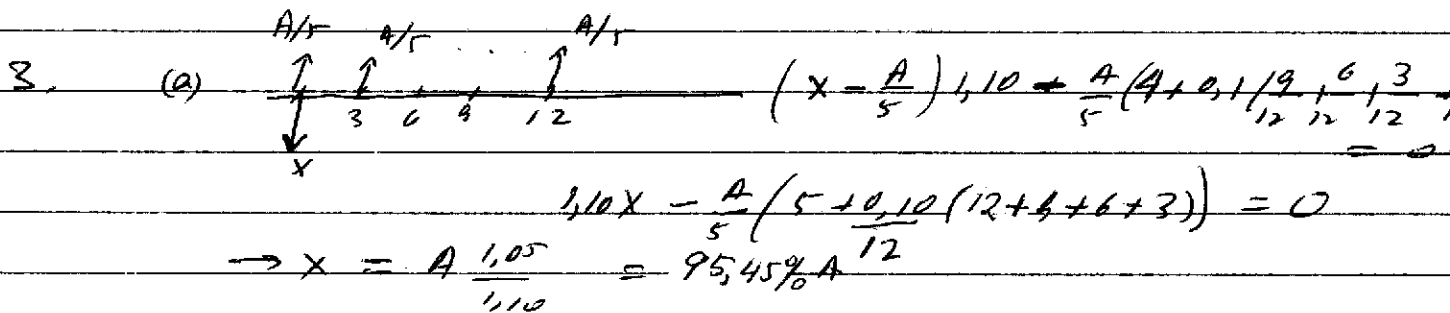 A/5 A/5 . . . A/5
3. (a) (x - A/5) 1,10 - A/5 (4 + 0,1 (9/12 + 6/12 + 3/12 +
3 6 9 12 = 0
x
1,10x - A/5 (5 + 0,10/12 (12+9+6+3)) = 0
→ x = A 1,05/1,10 = 95,45% A